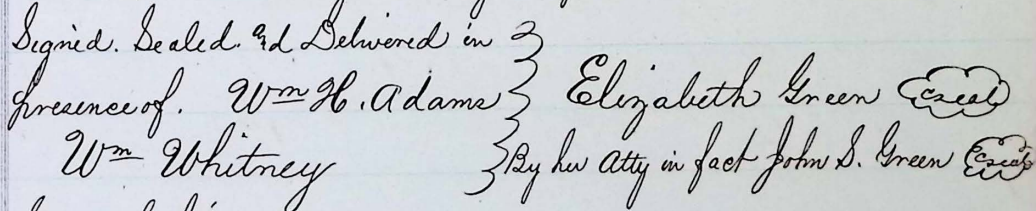 Signed. Sealed. and Delivered in
presence of. Wm H. Adams
Elizabeth Green (Seal)
Wm Whitney
By her Atty in fact John S. Green (Seal)